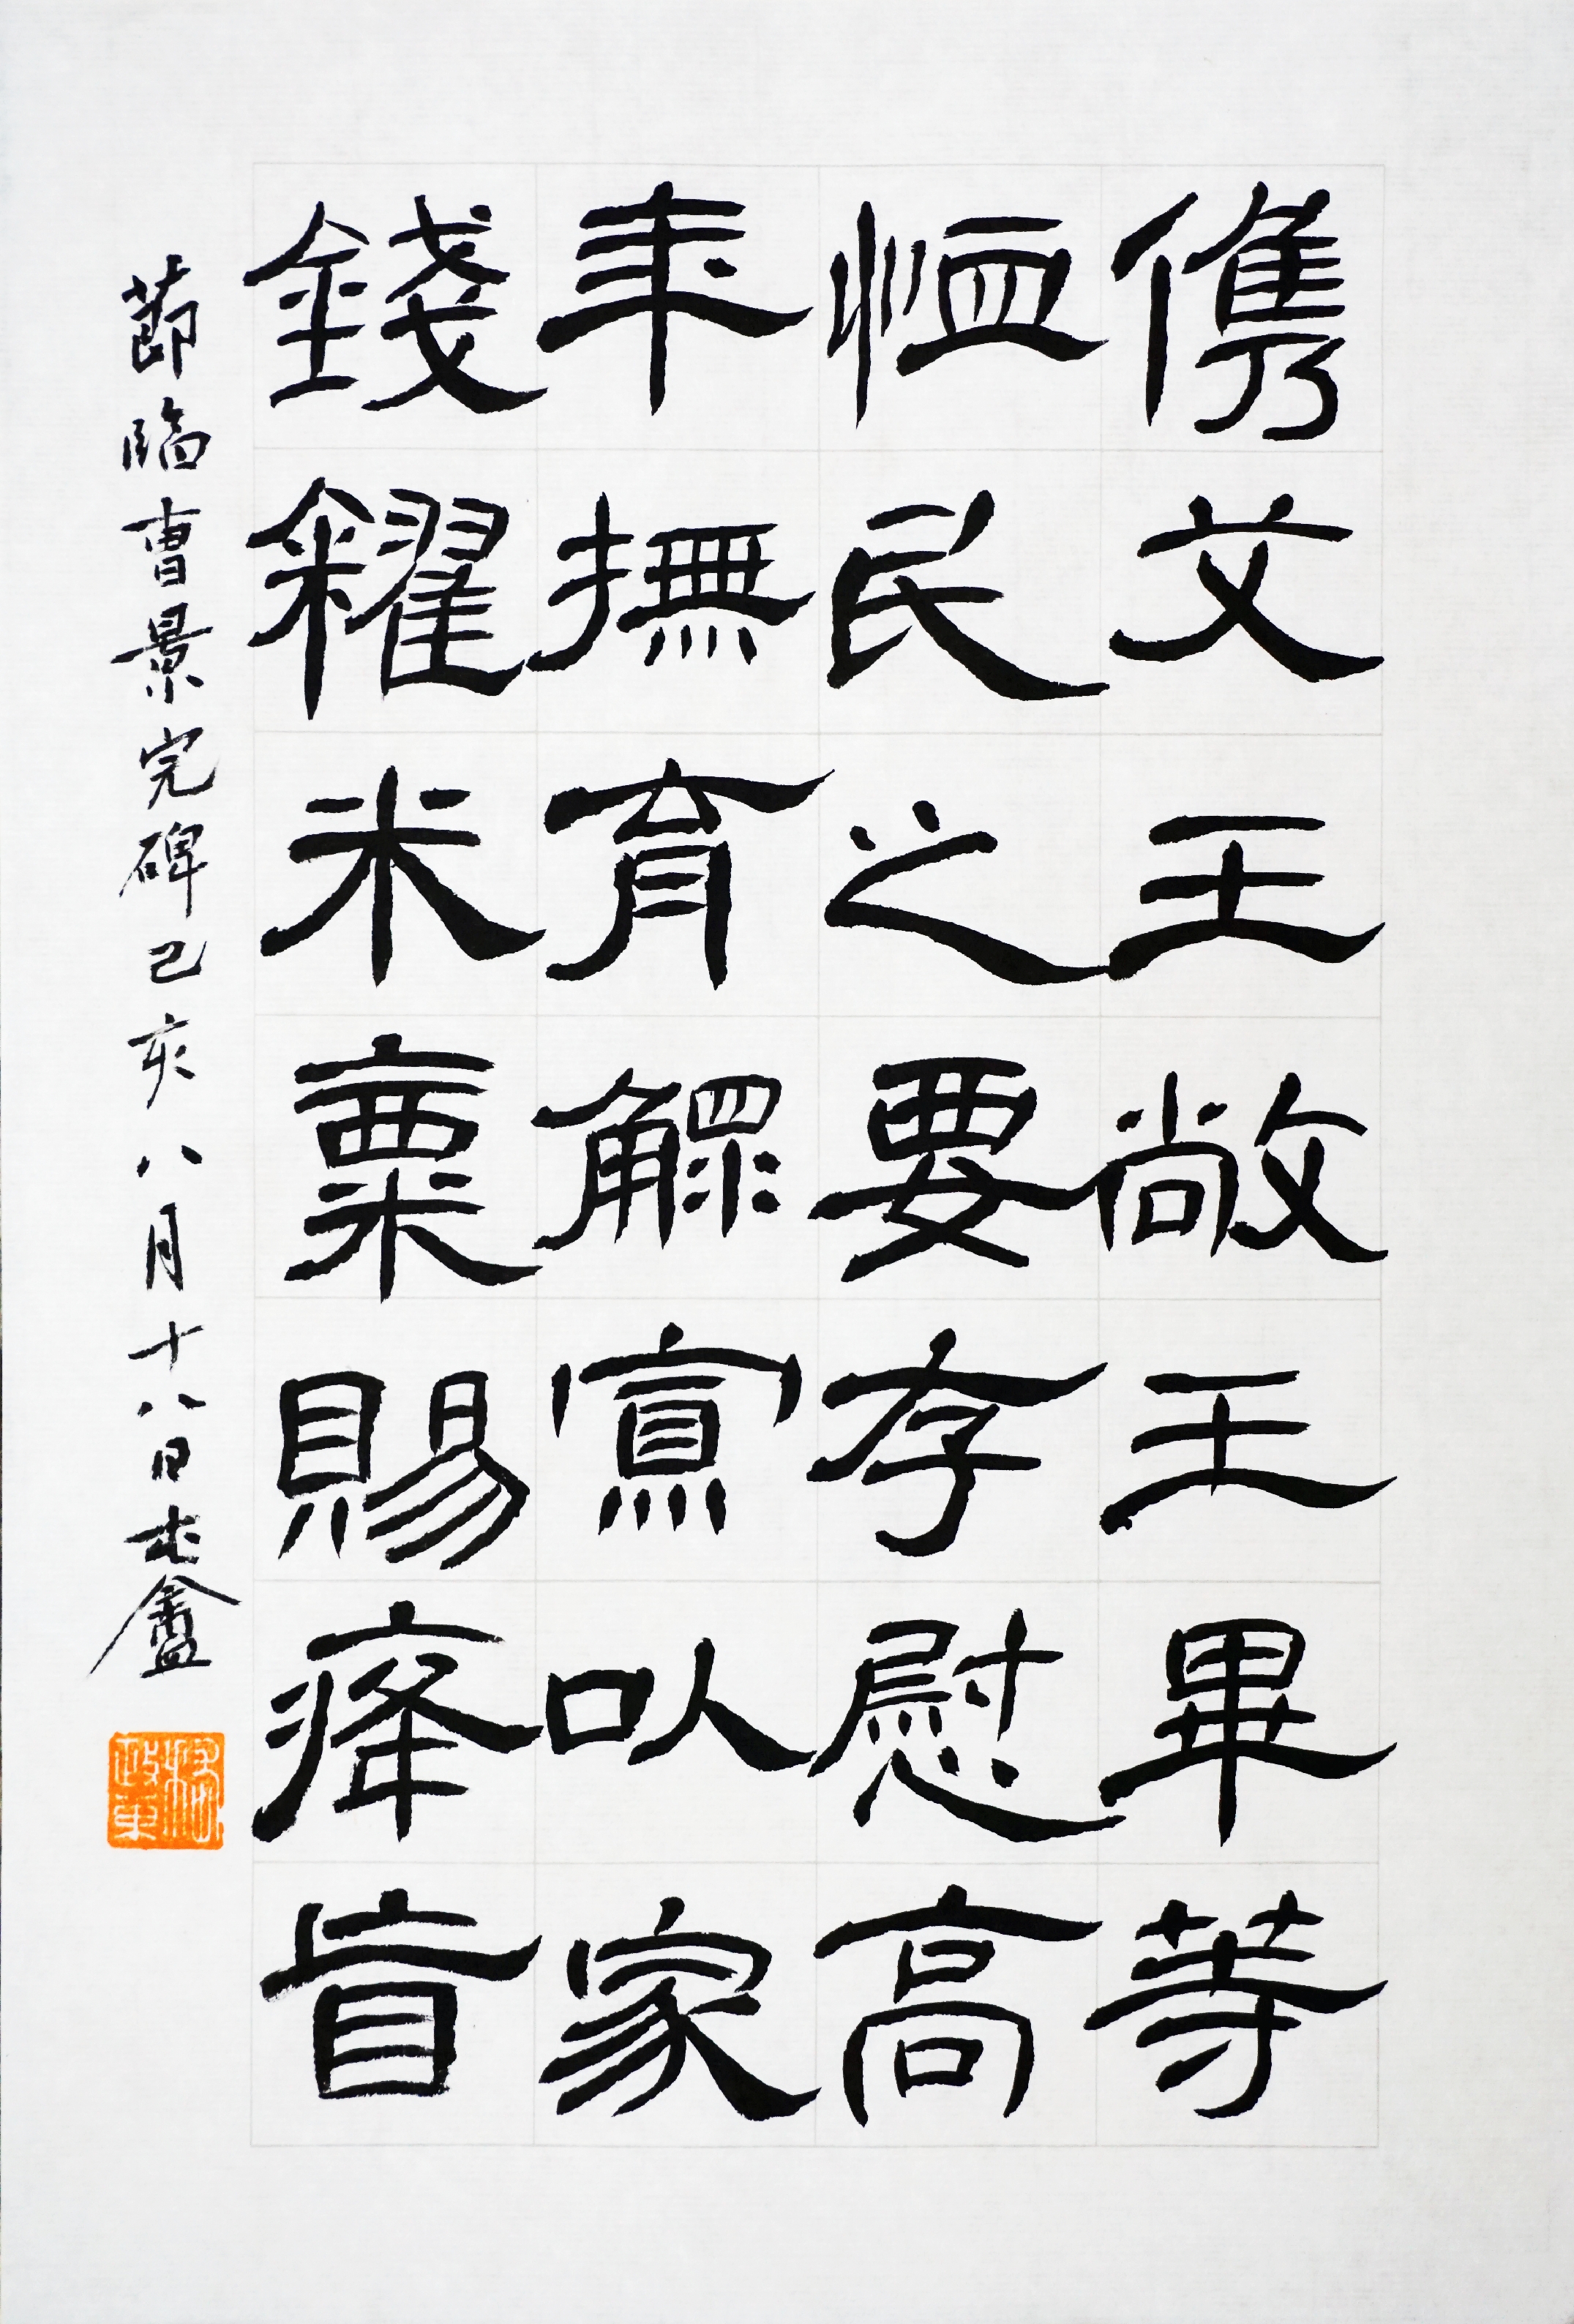 儁艾王敞王畢等
恤民之要存慰高
年撫育鰥寡以家
錢糴米粟賜癃盲
節臨曹景完碑己亥八月十八日